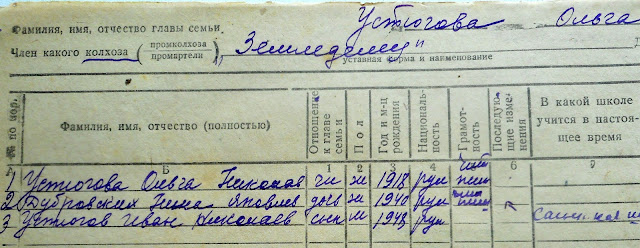 Фамилия, имя, отчество главы семьи Устюгова Ольга
Член какого колхоза (промколхоза промартели) „Земледелец"
уставная форма и наименование
№ по пор. Фамилия, имя, отчество (полностью) Отношение к главе семьи Пол Год и м-ц рождения Националь-ность Грамот-ность Последую-щие изме-нения В какой школе учится в настоя-щее время
А Б 1 2 3 4 5 6
1 Устюгова Ольга Николаев ж 1918 рус
2 Дубровских Нина Яковл дочь ж 1940 рус
3 Устюгов Иван Николаев сын м 1948 рус